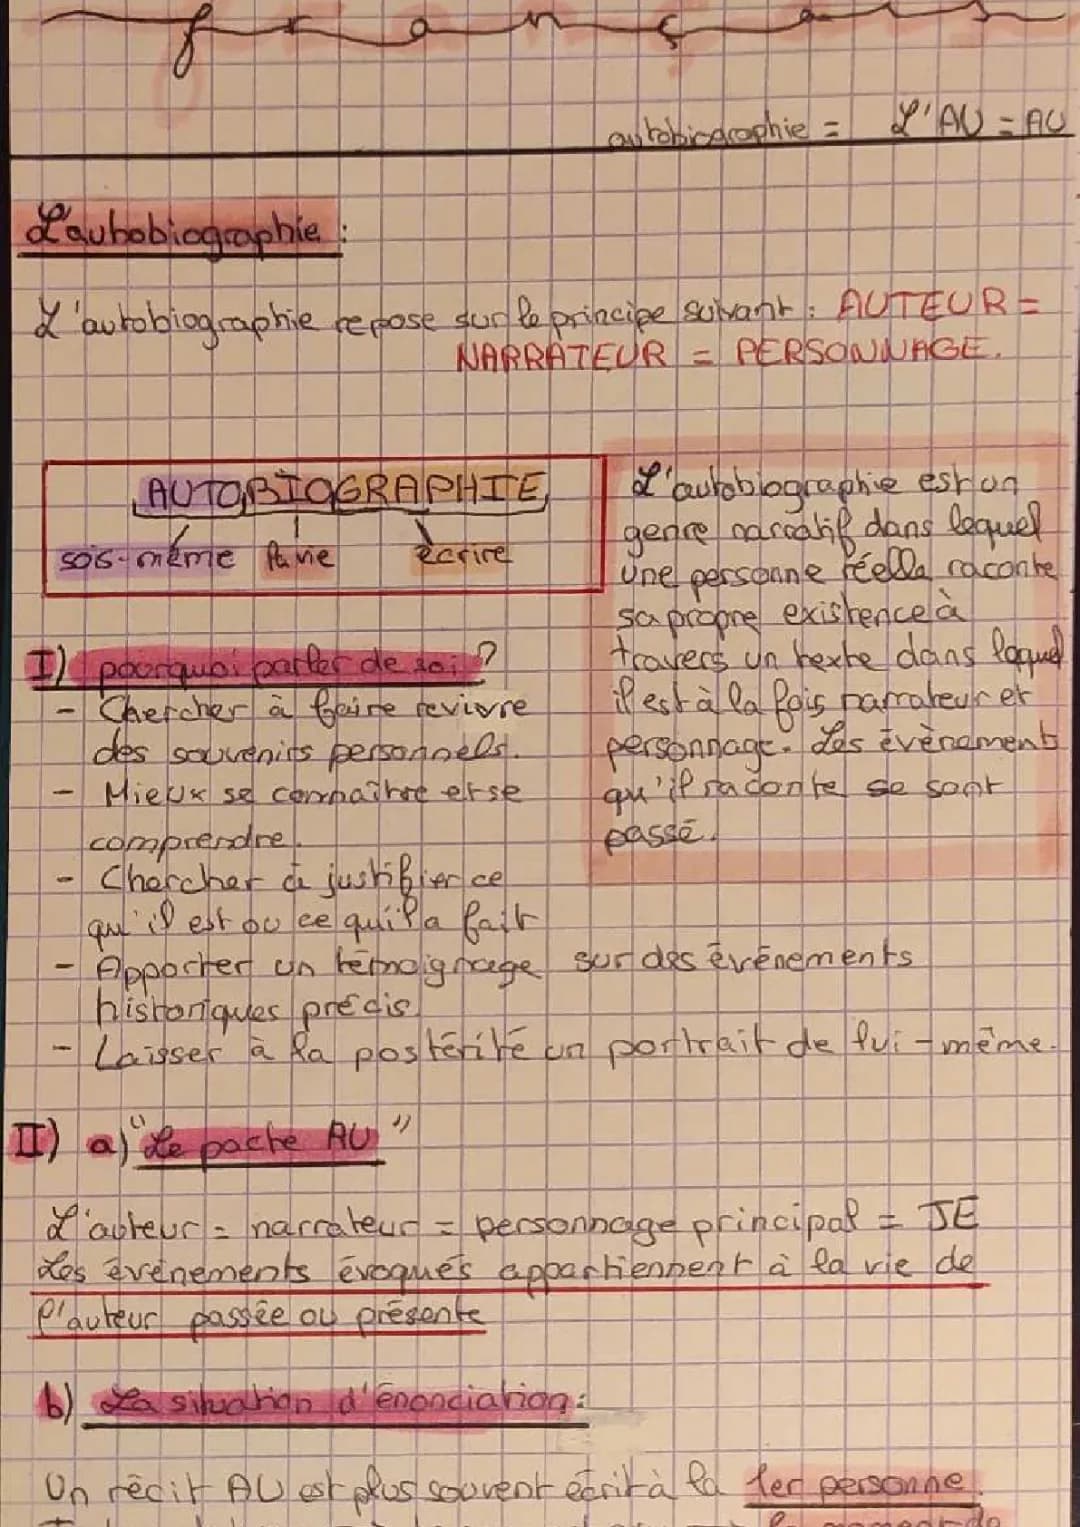 français
autobiographie = L'AU = AU
L'autobiographie :
L'autobiographie repose sur le principe suivant : AUTEUR =
NARRATEUR = PERSONNAGE.
AUTOBIOGRAPHIE
sois-même la vie écrire
L'autobiographie est un
genre narratif dans lequel
une personne réelle raconte
sa propre existence à
travers un texte dans laquel
il est à la fois narrateur et
personnage. Les évènement
qu'il raconte se sont
passé.
I) pourquoi parler de soi ?
- Chercher à faire revivre
des souvenirs personnels.
- Mieux se connaître et se
comprendre.
- Chercher à justifier ce
qu'il est ou ce qu'il a fait
- Apporter un témoignage sur des événements
historiques précis.
- Laisser à la postérité un portrait de lui-même.
II) a) "Le pacte AU"
L'auteur = narrateur = personnage principal = JE
Les événements évoqués appartiennent à la vie de
l'auteur passée ou présente
b) La situation d'énonciation :
Un récit AU est plus souvent écrit à la 1er personne.